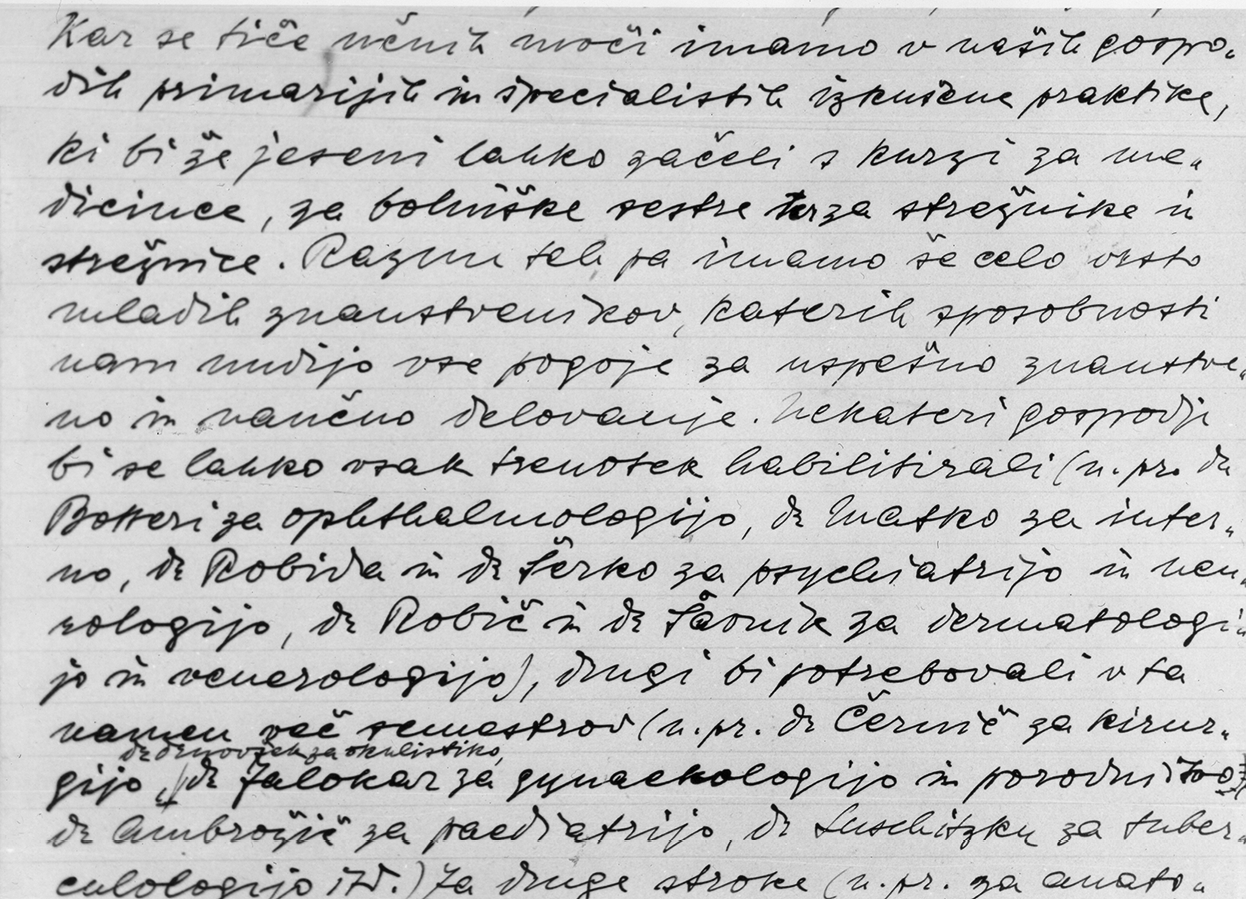 Kar se tiče učnih moči imamo v naših gospo„
dih primarijih in špecialistih izkušene praktike,
ki bi že jeseni lahko začeli s kurzi za me„
dicince, za bolniške sestre ter za strežnike in
strežnice. Razun teh pa imamo še celo vrsto
mladih znanstvenikov, katerih sposobnosti
nam nudijo vse pogoje za uspešno znanstve„
no in naučno delovanje. Nekateri gospodje
bi se lahko vsak trenotek habilitirali (n. pr. dr
Botteri za ophthalmologijo, dr Matko za inter„
no, dr Robida in dr Šerko za psychiatrijo in neu„
rologijo, dr Robič in dr Šavnik za dermatologi„
jo in venerologijo), drugi bi potrebovali v ta
namen več semestrov (n. pr. dr Černič za kirur„
dr Drnovšek za okulistiko,
gijo, dr Zalokar za gynaekologijo in porodništvo,
dr Ambrožič za paediatrijo, dr Luschitzky za tuber„
culologijo itd.) Za druge stroke (n. pr. za anato„